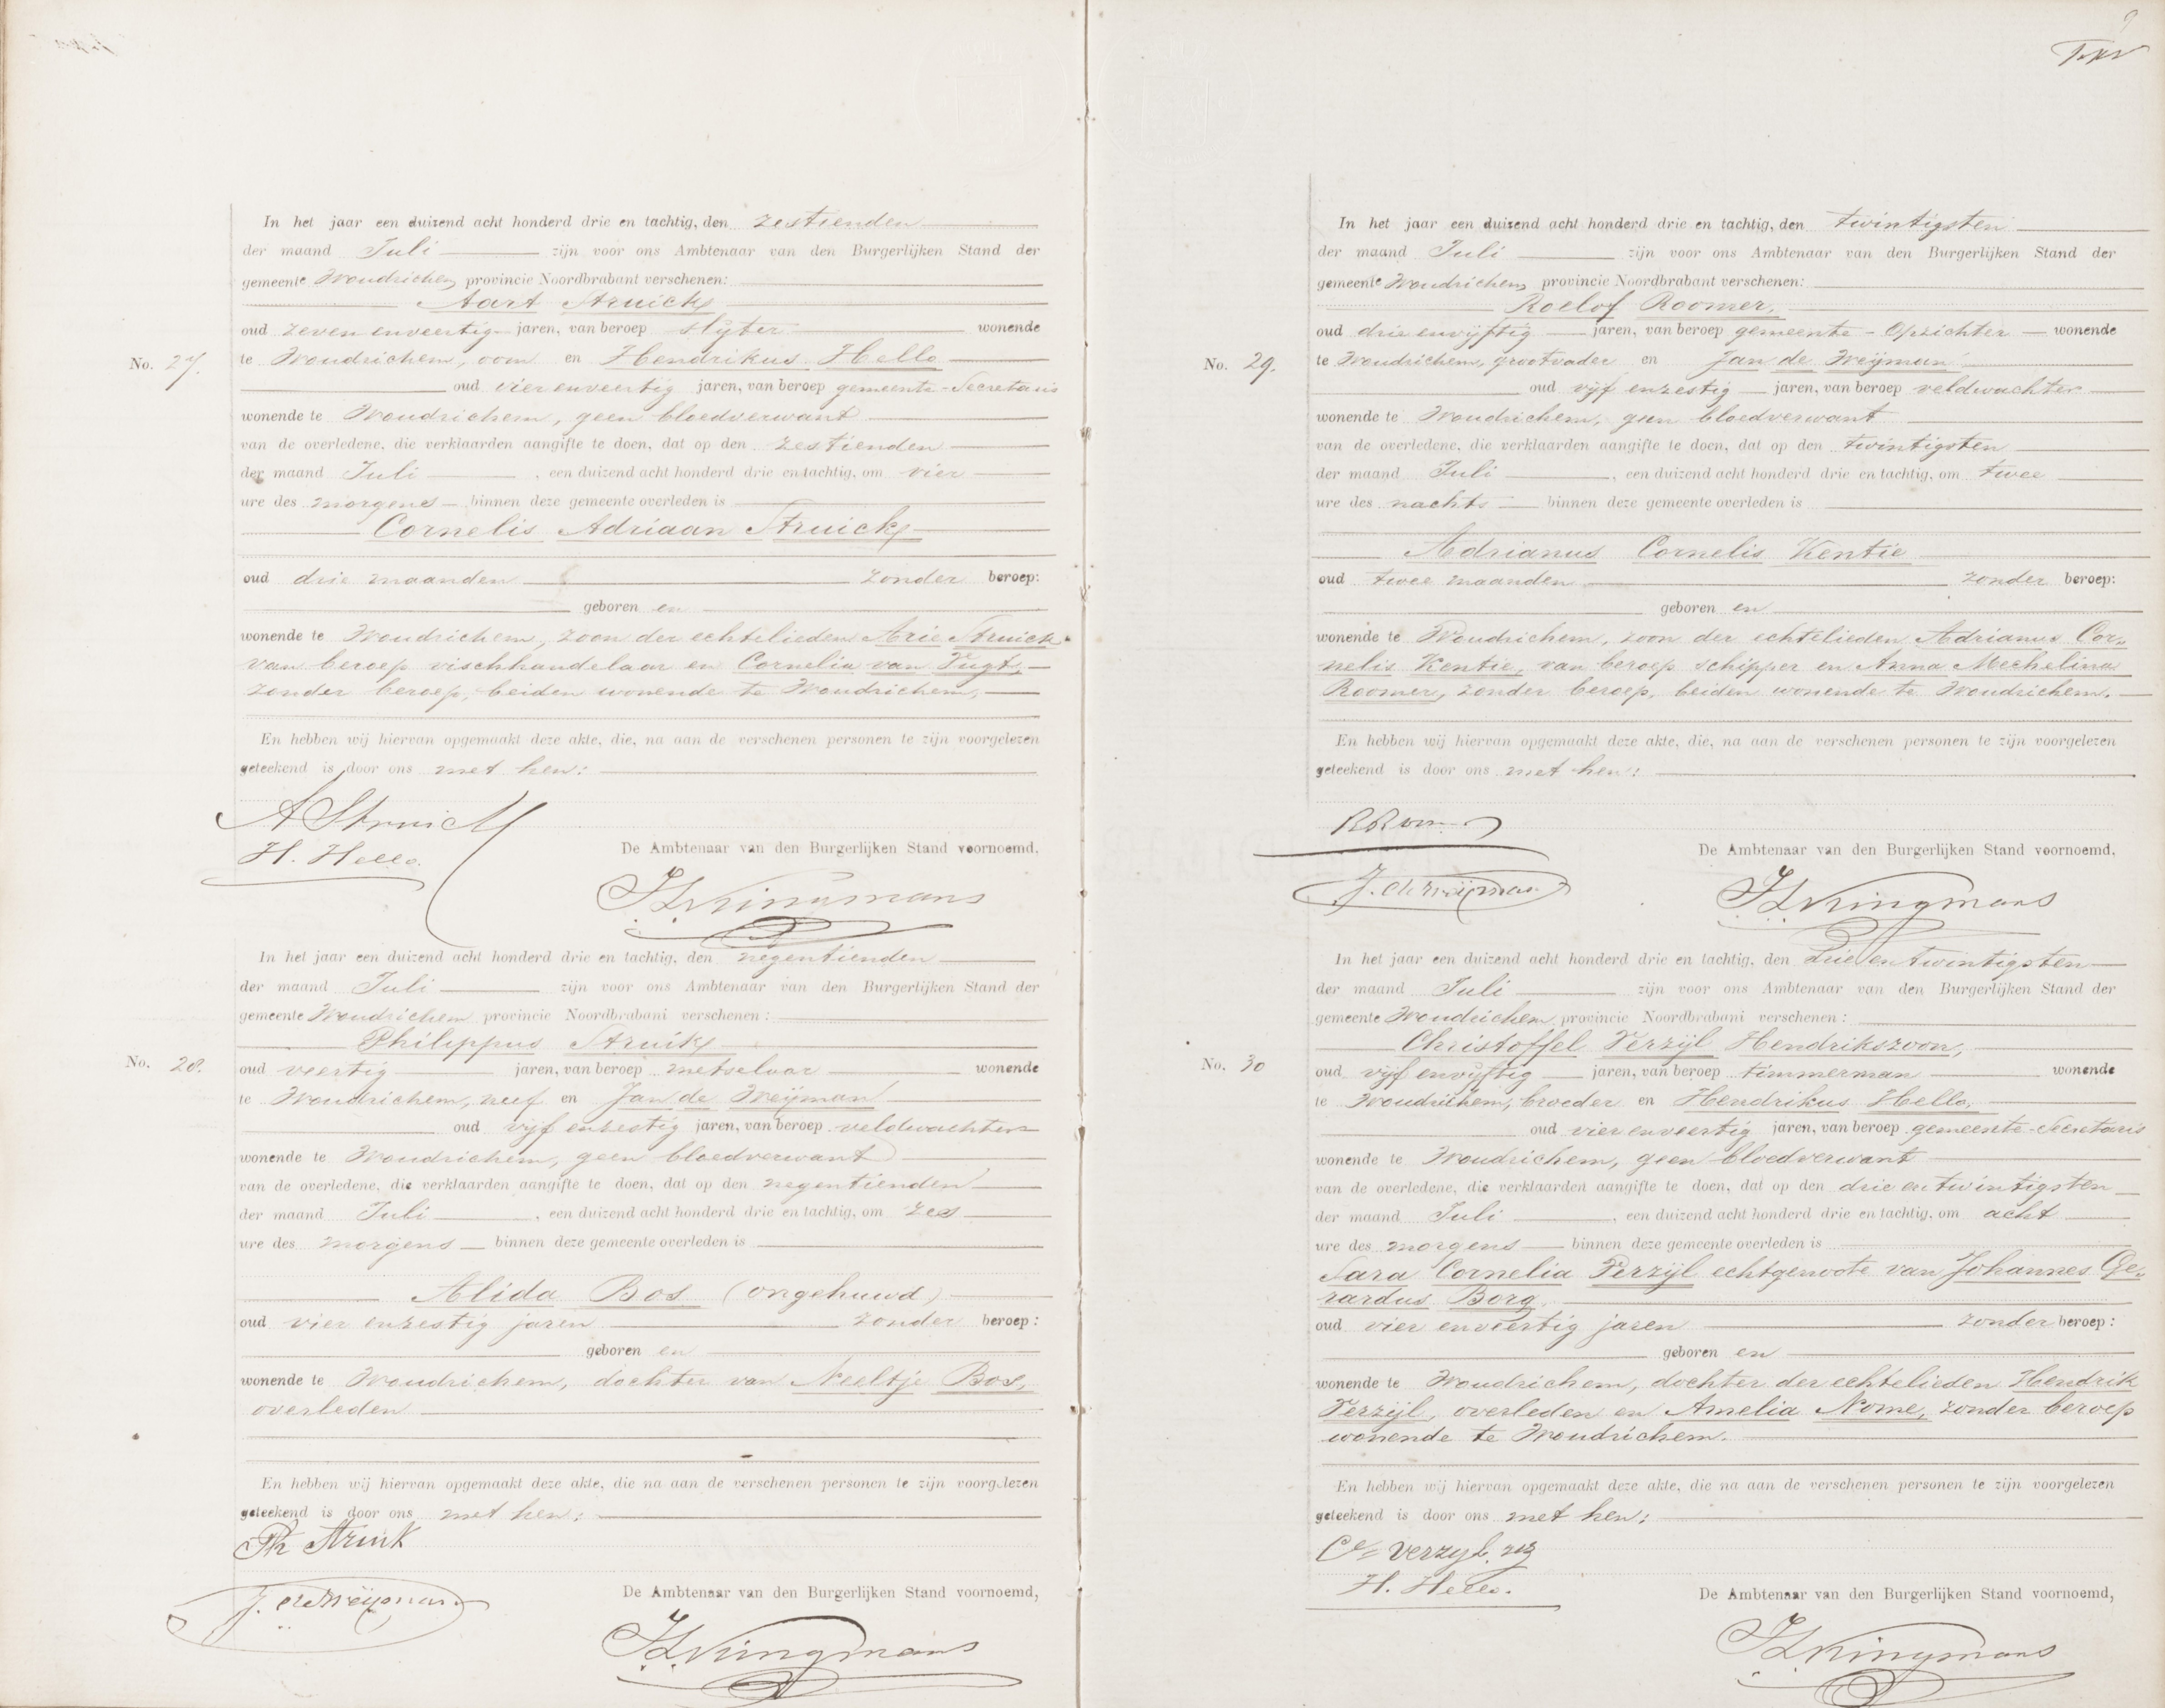 In het jaar een duizend acht honderd drie en tachtig, den zestienden
der maand Juli zijn voor ons Ambtenaar van den Burgerlijken Stand der
gemeente Woudrichem provincie Noordbrabant verschenen:
Aart Struick,
oud zeven enveertig jaren, van beroep slijter wonende
No. 27. te Woudrichem, oom en Hendrikus Hello
oud vier enveertig jaren, van beroep gemeente-Secretaris
wonende te Woudrichem, geen bloedverwant
van de overledene, die verklaarden aangifte te doen, dat op den zestienden
der maand Juli, een duizend acht honderd drie en tachtig, om vier
ure des morgens binnen deze gemeente overleden is
Cornelis Adriaan Struick,
oud drie maanden zonder beroep:
geboren en
wonende te Woudrichem, zoon der echtelieden Arie Struick
van beroep vischhandelaar en Cornelia van Vugt,
zonder beroep, beiden wonende te Woudrichem,
En hebben wij hiervan opgemaakt deze akte, die, na aan de verschenen personen te zijn voorgelezen
geteekend is door ons met hen:
A Struick
H. Hello.
De Ambtenaar van den Burgerlijken Stand voornoemd,
In het jaar een duizend acht honderd drie en tachtig, den negentienden
der maand Juli zijn voor ons Ambtenaar van den Burgerlijken Stand der
gemeente Woudrichem provincie Noordbrabant verschenen:
Philippus Struik,
No. 28. oud veertig jaren, van beroep metselaar wonende
te Woudrichem, neef en Jan de Weijman
oud vijf enzestig jaren, van beroep veldwachter
wonende te Woudrichem, geen bloedverwant
van de overledene, die verklaarden aangifte te doen, dat op den negentienden
der maand Juli, een duizend acht honderd drie en tachtig, om zes
ure des morgens binnen deze gemeente overleden is
Alida Bos (ongehuwd)
oud vier enzestig jaren zonder beroep:
geboren en
wonende te Woudrichem, dochter van Neeltje Bos,
overleden
En hebben wij hiervan opgemaakt deze akte, die na aan de verschenen personen te zijn voorgelezen
geteekend is door ons met hen:
Ph Struik
J. de Weijman
De Ambtenaar van den Burgerlijken Stand voornoemd,
9
In het jaar een duizend acht honderd drie en tachtig, den twintigsten
der maand Juli zijn voor ons Ambtenaar van den Burgerlijken Stand der
gemeente Woudrichem provincie Noordbrabant verschenen:
Roelof Roomer,
oud drie envijftig jaren, van beroep gemeente-Opzichter wonende
No. 29. te Woudrichem, grootvader en Jan de Weijman
oud vijf enzestig jaren, van beroep veldwachter
wonende te Woudrichem, geen bloedverwant
van de overledene, die verklaarden aangifte te doen, dat op den twintigsten
der maand Juli, een duizend acht honderd drie en tachtig, om twee
ure des nachts binnen deze gemeente overleden is
Adrianus Cornelis Kentie
oud twee maanden zonder beroep:
geboren en
wonende te Woudrichem, zoon der echtelieden Adrianus Cor„
nelis Kentie, van beroep schipper en Anna Mechelina
Roomer, zonder beroep, beiden wonende te Woudrichem.
En hebben wij hiervan opgemaakt deze akte, die, na aan de verschenen personen te zijn voorgelezen
geteekend is door ons met hen:
R Roomer
J. de Weijman
De Ambtenaar van den Burgerlijken Stand voornoemd,
In het jaar een duizend acht honderd drie en tachtig, den drie en twintigsten
der maand Juli zijn voor ons Ambtenaar van den Burgerlijken Stand der
gemeente Woudrichem provincie Noordbrabant verschenen:
Christoffel Verzijl Hendrikszoon,
No. 30 oud vijf envijftig jaren, van beroep timmerman wonende
te Woudrichem, broeder en Hendrikus Hello,
oud vier enveertig jaren, van beroep gemeente-Secretaris
wonende te Woudrichem, geen bloedverwant
van de overledene, die verklaarden aangifte te doen, dat op den drie en twintigsten
der maand Juli, een duizend acht honderd drie en tachtig, om acht
ure des morgens binnen deze gemeente overleden is
Sara Cornelia Verzijl echtgenoote van Johannes Ge„
rardus Borg
oud vier enveertig jaren zonder beroep:
geboren en
wonende te Woudrichem, dochter der echtelieden Hendrik
Verzijl, overleden en Amelia Nome, zonder beroep
wonende te Woudrichem.
En hebben wij hiervan opgemaakt deze akte, die na aan de verschenen personen te zijn voorgelezen
geteekend is door ons met hen:
Verzyl
H. Hello.
De Ambtenaar van den Burgerlijken Stand voornoemd,